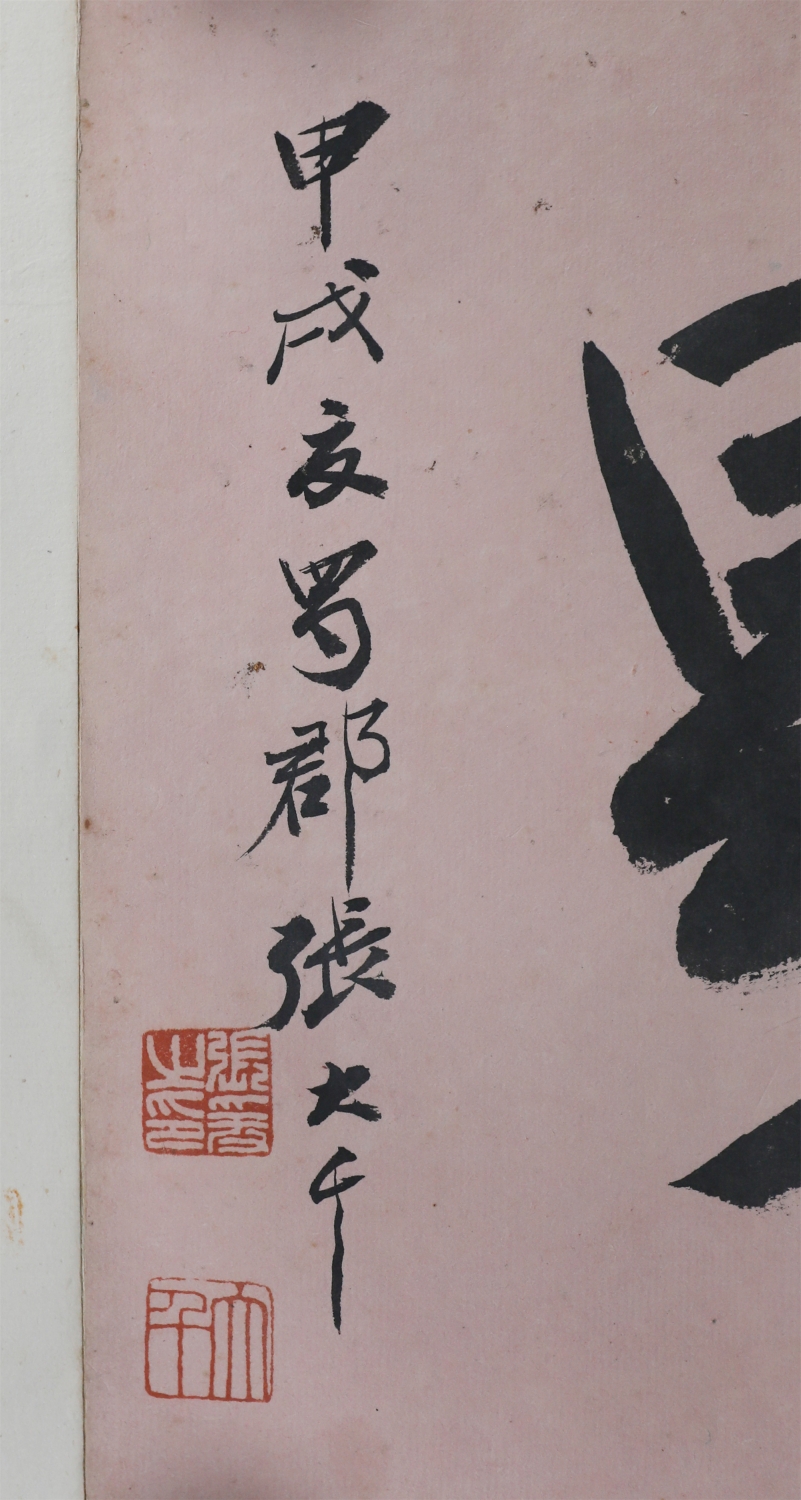 甲戌夏蜀郡張大千
張爰
之印
大千